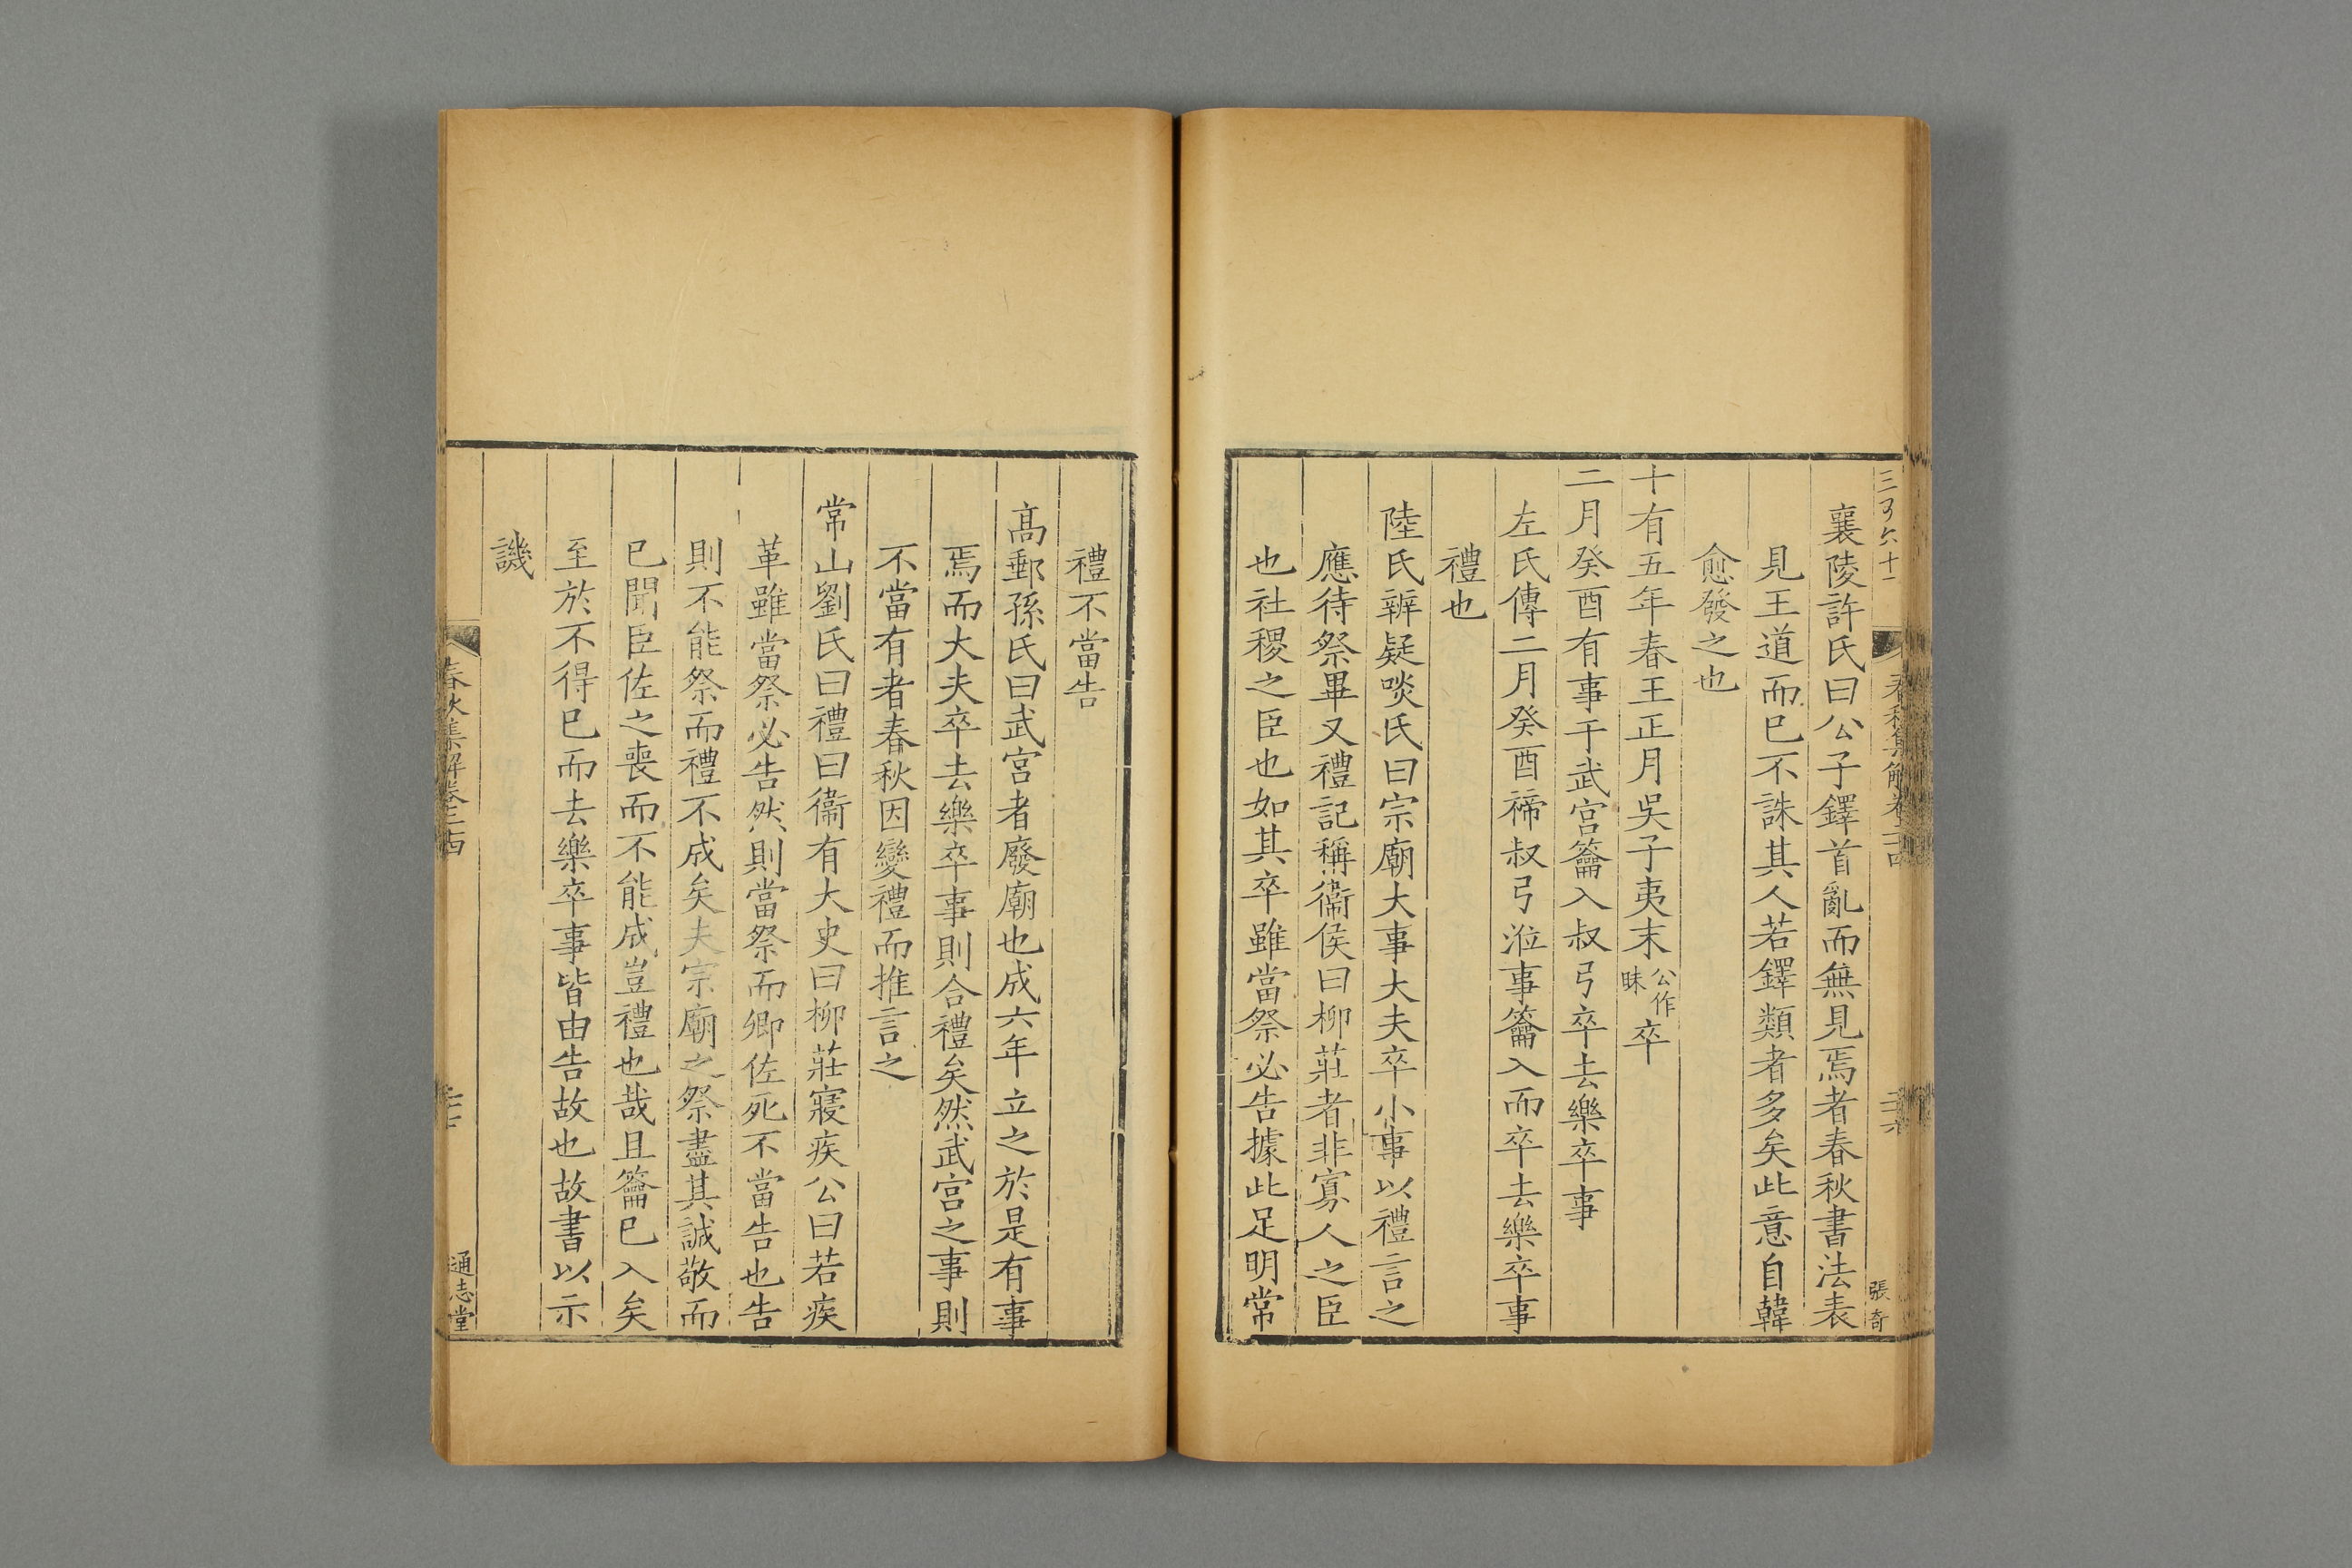 三百六十一
春秋集解卷二十四
二十六
張奇
襄陵許氏曰公子鐸首亂而無見焉者春秋書法表
見王道而已不誅其人若鐸類者多矣此意自韓
愈發之也
十有五年春王正月吳子夷末公作昧卒
二月癸酉有事于武宮籥入叔弓卒去樂卒事
左氏傳二月癸酉禘叔弓涖事籥入而卒去樂卒事
禮也
陸氏辨疑啖氏曰宗廟大事大夫卒小事以禮言之
應待祭畢又禮記稱衞侯曰柳莊者非寡人之臣
也社稷之臣也如其卒雖當祭必告據此足明常
禮不當告
高郵孫氏曰武宮者廢廟也成六年立之於是有事
焉而大夫卒去樂卒事則合禮矣然武宮之事則
不當有者春秋因變禮而推言之
常山劉氏曰禮曰衞有大史曰柳莊寢疾公曰若疾
革雖當祭必告然則當祭而卿佐死不當告也告
則不能祭而禮不成矣夫宗廟之祭盡其誠敬而
已聞臣佐之喪而不能成豈禮也哉且籥已入矣
至於不得已而去樂卒事皆由告故也故書以示
譏
春秋集解卷二十四
通志堂